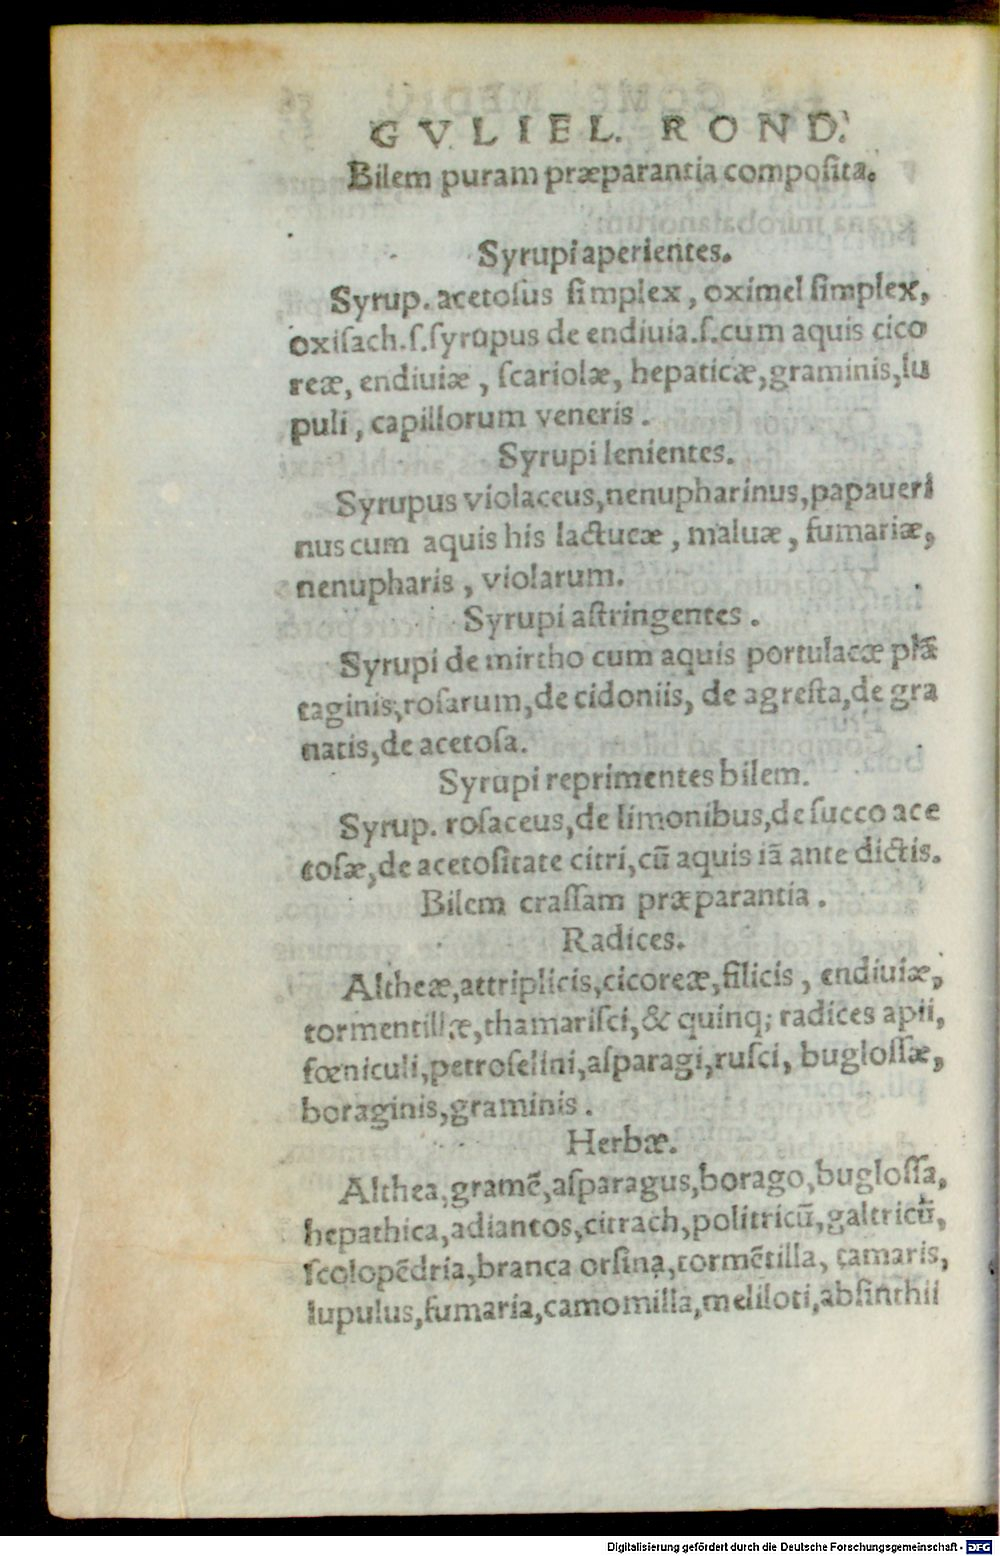 GVLIEL. ROND.
Bilem puram præparantia composita.
Syrupi aperientes.
Syrup. acetosus simplex, oximel simplex,
oxisach.ſ.ſyrupus de endiuia.ſ.cum aquis cico
reæ, endiuiæ, ſcariolæ, hepaticæ, graminis, lu
puli, capillorum veneris.
Syrupi lenientes.
Syrupus violaceus, nenupharinus, papaueri
nus cum aquis his lactucæ, maluæ, fumariæ,
nenupharis, violarum.
Syrupi aſtringentes.
Syrupi de mirtho cum aquis portulacæ plã
taginis, roſarum, de cidoniis, de agreſta, de gra
natis, de acetoſa.
Syrupi reprimentes bilem.
Syrup. roſaceus, de limonibus, de ſucco ace
toſæ, de acetoſitate citri, cũ aquis iã ante dictis.
Bilem craſſam præparantia.
Radices.
Altheæ, attriplicis, cicoreæ, filicis, endiuiæ,
tormentillæ, thamariſci, & quinq; radices apii,
fœniculi, petroſelini, aſparagi, ruſci, bugloſſæ,
boraginis, graminis.
Herbæ.
Althea, gramẽ, aſparagus, borago, bugloſſa,
hepathica, adiantos, citrach, politricũ, galtricũ,
ſcolopẽdria, branca orſina, tormẽtilla, tamaris,
lupulus, fumaria, camomilla, meliloti, abſinthii
Digitalisierung gefördert durch die Deutsche Forschungsgemeinschaft - DFG